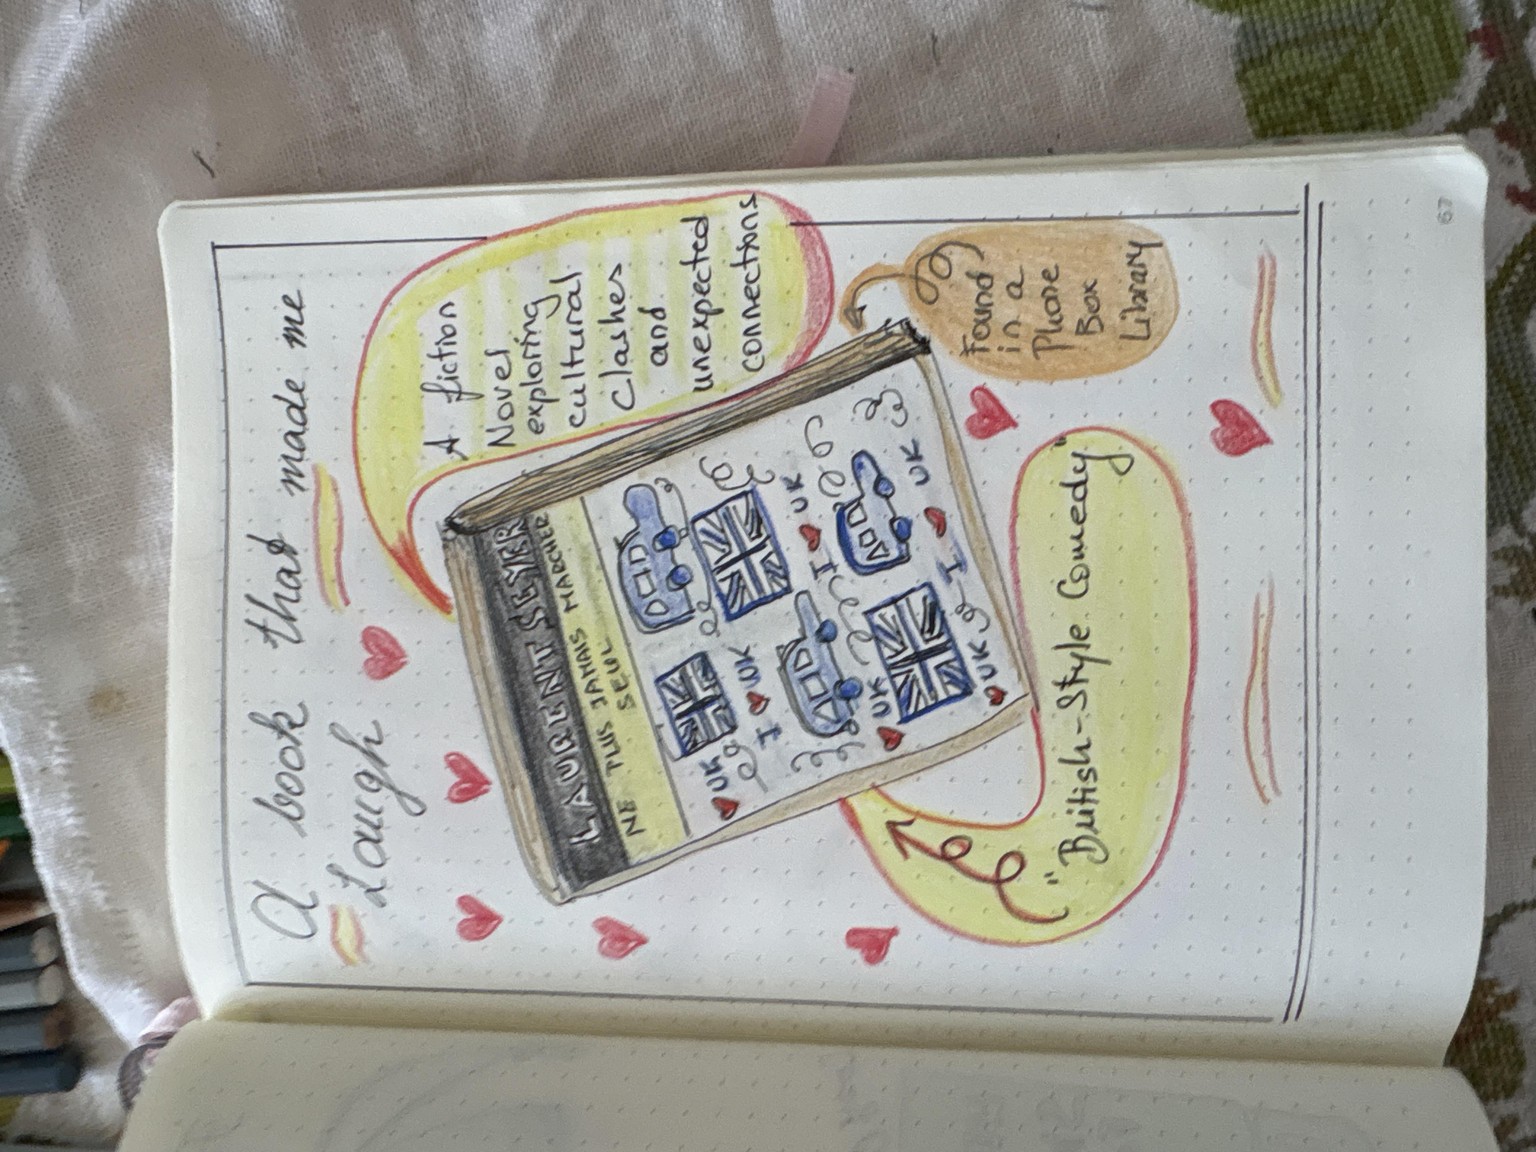 A book that made me
Laugh
A fiction
Novel
exploring
cultural
Clashes
and
unexpected
connections
LAURENT SEYER
NE PLUS JAMAIS MARCHER
SEUL
UK
I ❤ UK
I ❤ UK
❤ UK
I ❤ UK
❤ UK
Found
in a
Phone
Box
Library
"British-Style Comedy"
67